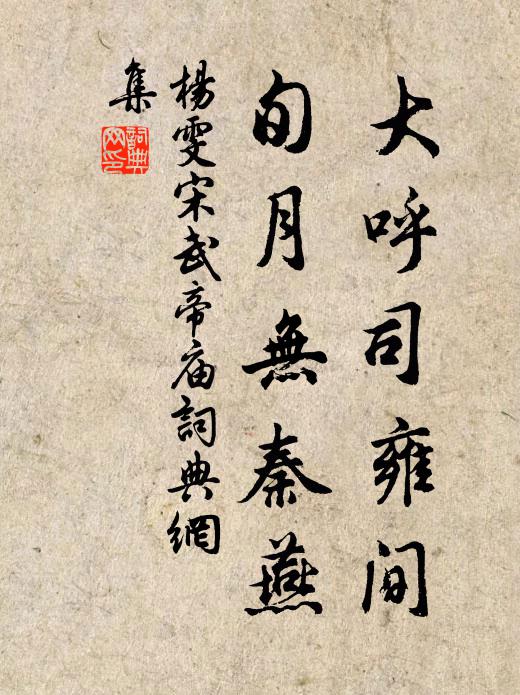 大呼司雍间
旬月無秦燕
楊雯宋武帝庙詞典網
集
詞典網印